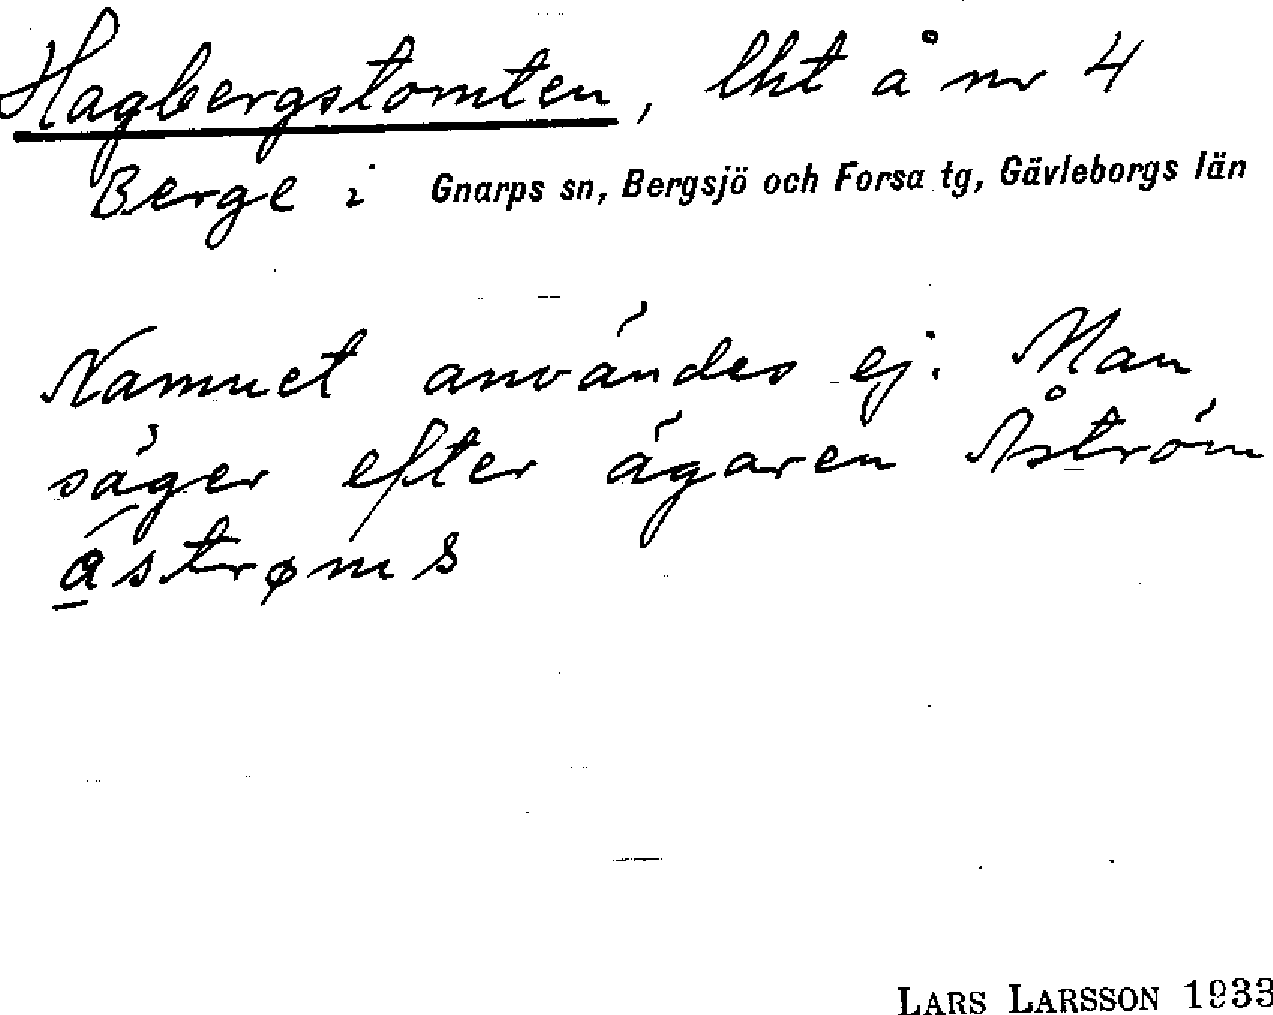 Hagbergstomten, lht å nr 4
Berge i Gnarps sn, Bergsjö och Forsa tg, Gävleborgs län
Namnet användes ej. Man
säger efter ägaren Åström
åstrøms
LARS LARSSON 1933